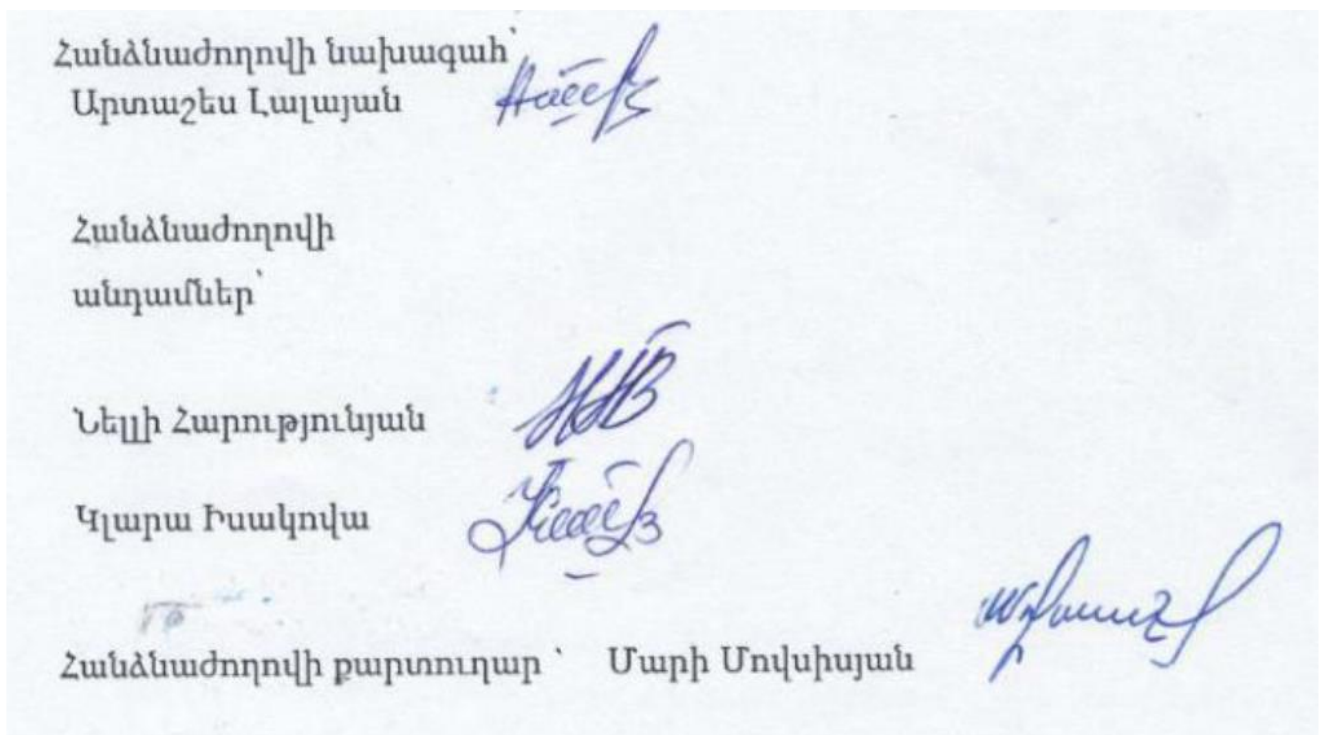 Հանձնաժողովի նախագահ՝
Արտաշես Լալայան
Հանձնաժողովի
անդամներ՝
Նելլի Հարությունյան
Կլարա Իսակովա
Հանձնաժողովի քարտուղար ՝ Մարի Մովսիսյան